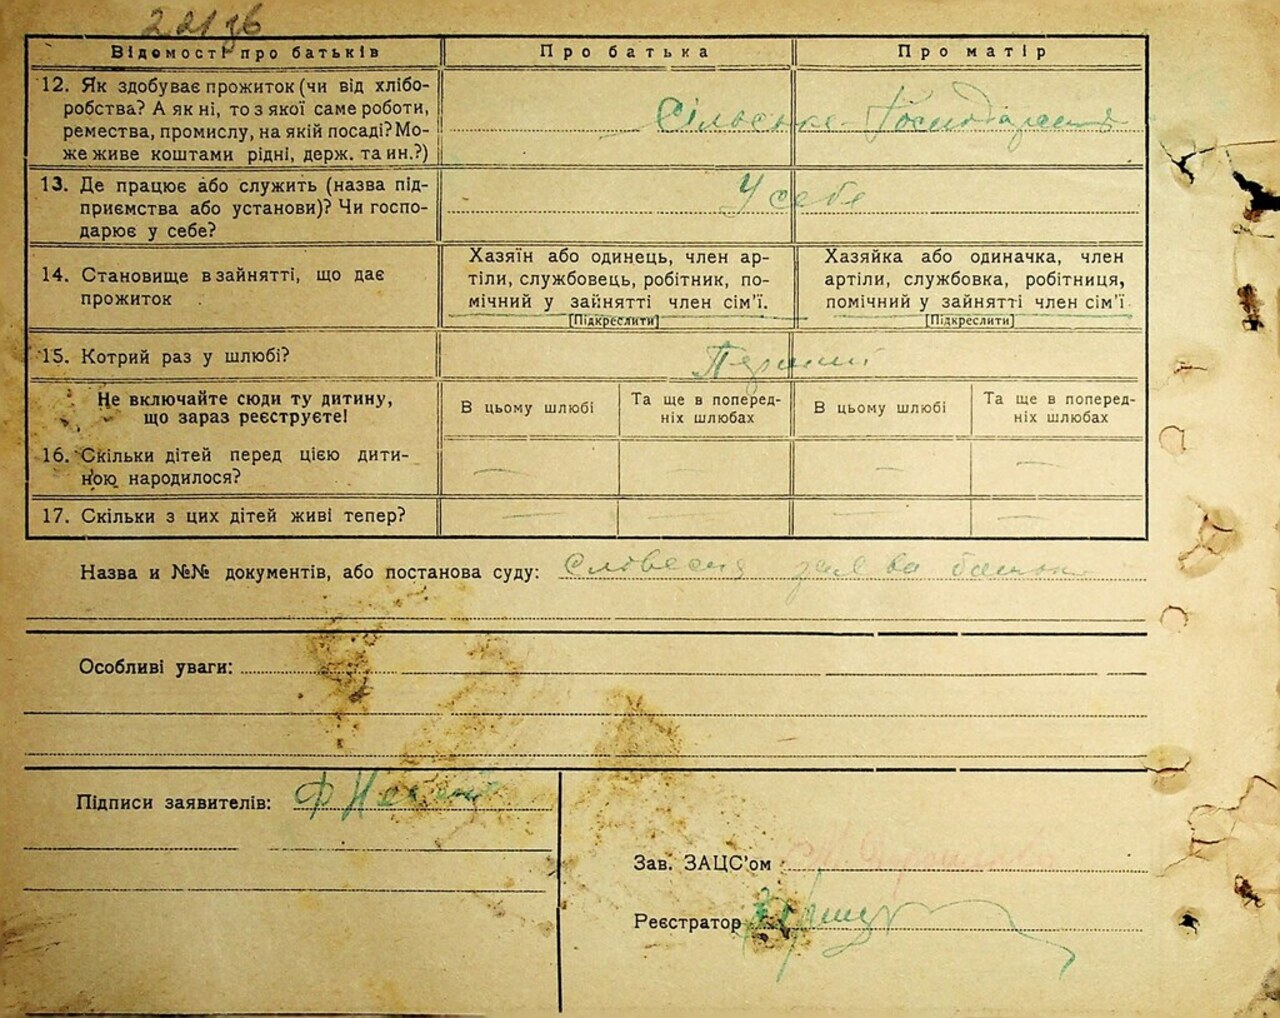 Відомості про батьків
Про батька
Про матір
12. Як здобуває прожиток (чи від хлібо-
робства? А як ні, то з якої саме роботи,
ремества, промислу, на якій посаді? Мо-
же живе коштами рідні, держ. та ин.?)
Сільське-Господарство
13. Де працює або служить (назва під-
приємства або установи)? Чи госпо-
дарює у себе?
У себе
14. Становище в зайнятті, що дає
прожиток
Хазяїн або одинець, член ар-
тілі, службовець, робітник, по-
мічний у зайнятті член сім'ї.
[Підкреслити]
Хазяйка або одиначка, член
артілі, службовка, робітниця,
помічний у зайнятті член сім'ї
[Підкреслити]
15. Котрий раз у шлюбі?
Перший
Не включайте сюди ту дитину,
що зараз реєструєте!
В цьому шлюбі
Та ще в поперед-
ніх шлюбах
В цьому шлюбі
Та ще в поперед-
ніх шлюбах
16. Скільки дітей перед цією дити-
ною народилося?
— — — —
17. Скільки з цих дітей живі тепер?
— — — —
Назва и №№ документів, або постанова суду: Словесна заява батька
Особливі уваги:
Підписи заявителів:
Зав. ЗАЦС'ом
Реєстратор